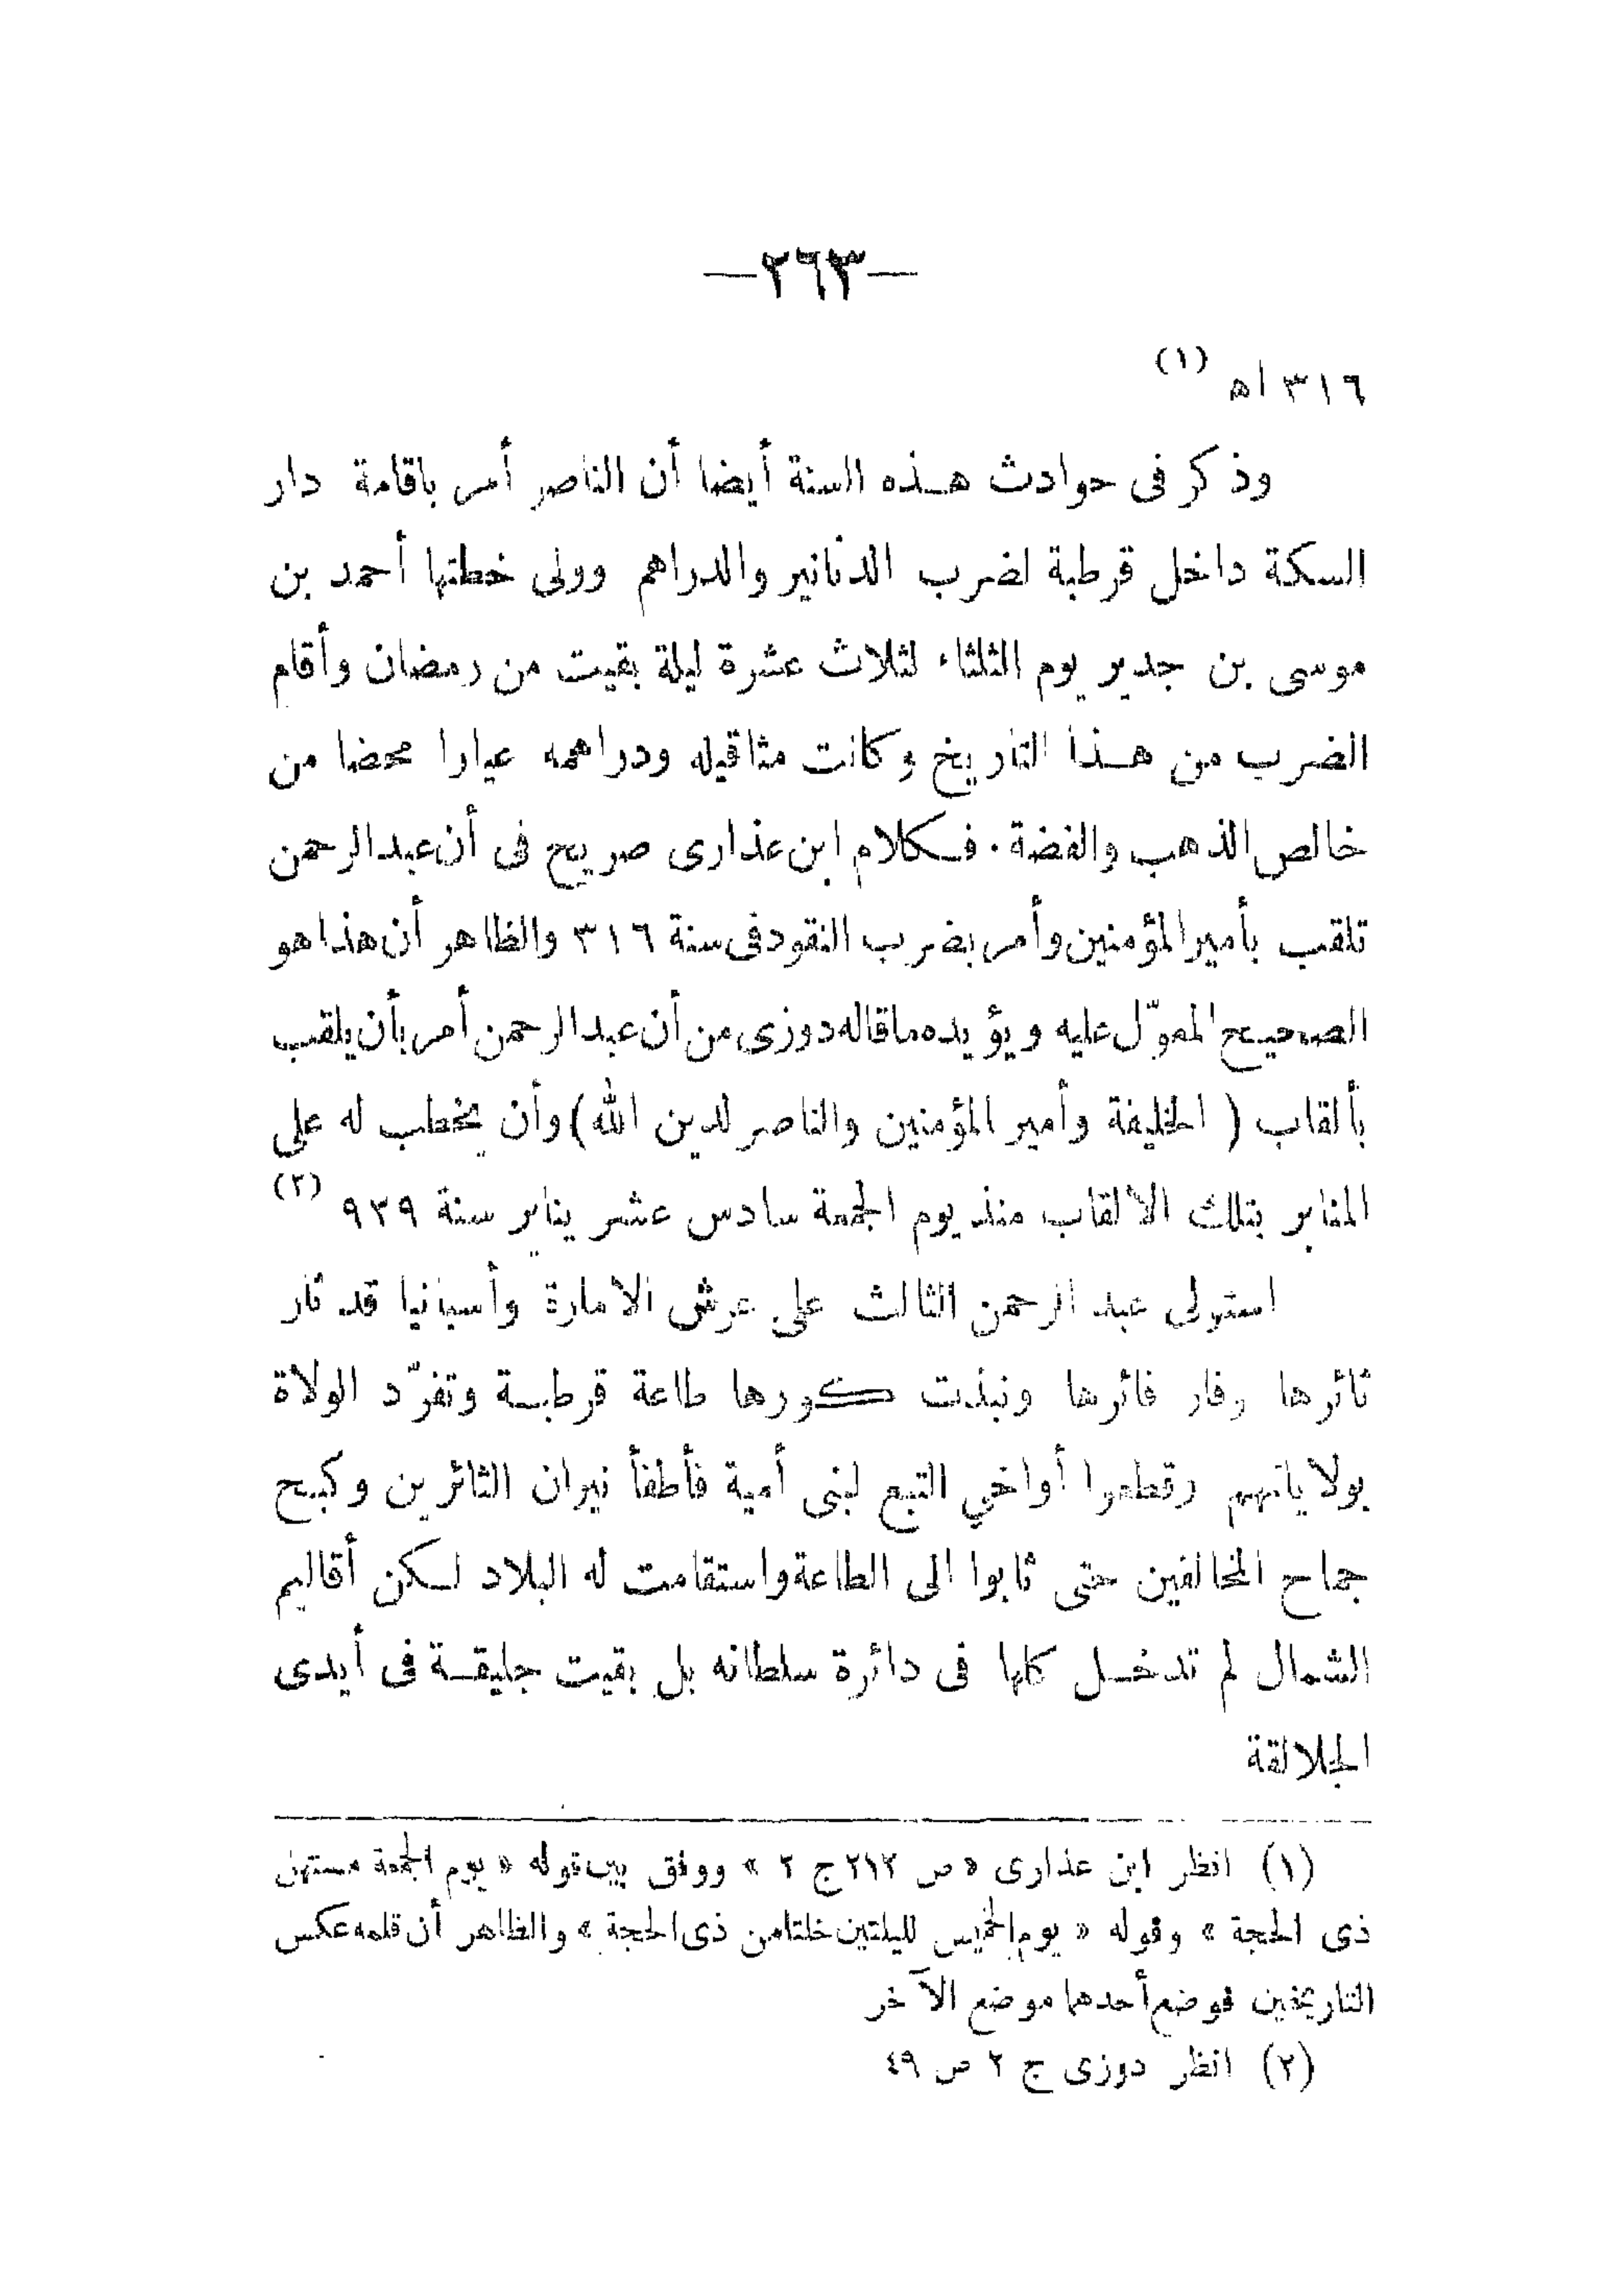 —٢٦٣—
٣١٦ اه (١)
وذكر فى حوادث هذه السنة أيضا أن الناصر أمر باقامة دار
السكة داخل قرطبة لضرب الدنانير والدراهم وولى خطتها أحمد بن
موسى بن جدير يوم الثلثاء لثلاث عشرة ليلة بقيت من رمضان وأقام
الضرب من هذا التاريخ وكانت مثاقيله ودراهمه عيارا محضا من
خالص الذهب والفضة . فكلام ابن عذارى صريح فى أن عبد الرحمن
تلقب بأمير المؤمنين وأمر بضرب النقود فى سنة ٣١٦ والظاهر أن هذا هو
الصحيح المعوّل عليه ويؤيده ماقاله دوزى من أن عبد الرحمن أمر بأن يلقب
بألقاب ( الخليفة وأمير المؤمنين والناصر لدين الله) وأن يخطب له على
المنابر بتلك الألقاب منذ يوم الجمعة سادس عشر يناير سنة ٩٢٩ (٢)
استولى عبد الرحمن الثالث على عرش الامارة وأسبانيا قد ثار
ثائرها وفار فائرها ونبذت كورها طاعة قرطبة وتفرّد الولاة
بولاياتهم وقطعوا أواخي التبع لبنى أمية فأطفأ نيران الثائرين وكبح
جماح المخالفين حتى ثابوا الى الطاعة واستقامت له البلاد لكن أقاليم
الشمال لم تدخل كلها فى دائرة سلطانه بل بقيت جليقة فى أيدى
الجلالقة
(١) انظر ابن عذارى « ص ٢١٢ ج ٢ » ووفق بين قوله « يوم الجمعة مستهل
ذى الحجة » وقوله « يوم الخميس لليلتين خلتا من ذى الحجة » والظاهر أن قلمه عكس
التاريخين فوضع أحدهما موضع الآخر
(٢) انظر دوزى ج ٢ ص ٤٩